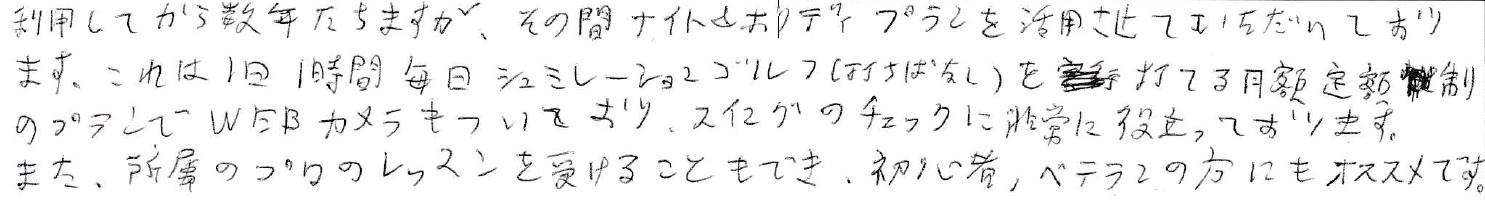 利用してから数年たちますが、その間ナイト&ホリデイプランを活用させていただいており
ます。これは1日1時間毎日シュミレーションゴルフ(打ちぱなし)を打てる月額定額制
のプランでWEBカメラもついており、スイングのチェックに非常に役立っております。
また、所属のプロのレッスンを受けることもでき、初心者,ベテランの方にもオススメです。